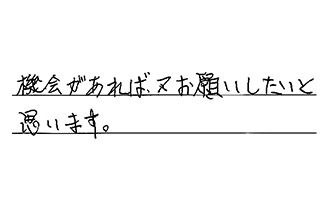 機会があれば、又お願いしたいと
思います。